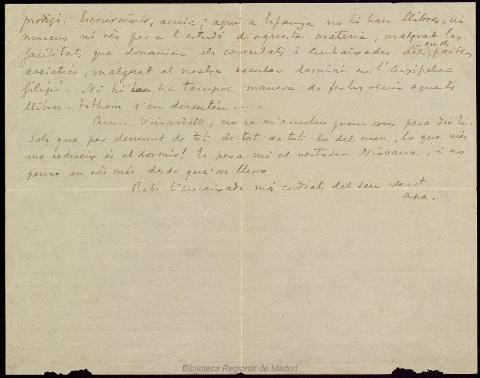 prodigi. amic; aquí a Espanya no hi han llibres, ni
museus ni rés per a l'estudi d'aquesta materia, malgrat las
facilitats que donarien els consulats i embaixades dels paisos
asiatics, malgrat el nostre secular domini en l'Arxipelag
filipí. No hi ha tampoc manera de fer-los venir aquets
llibres. Tothom s'en desentén......
Amic no se m'acuden grans coses pera dirli.
Sols que per demunt de tot de tot de tot lo del mon, lo que més
me sedueix es el dormir! Es pera mi el vertader Nirvana, i no
penso en rés més desde que'm llevo
Rebi l'encaixade més cordial del seu
Apa.
Biblioteca Regional de Madrid